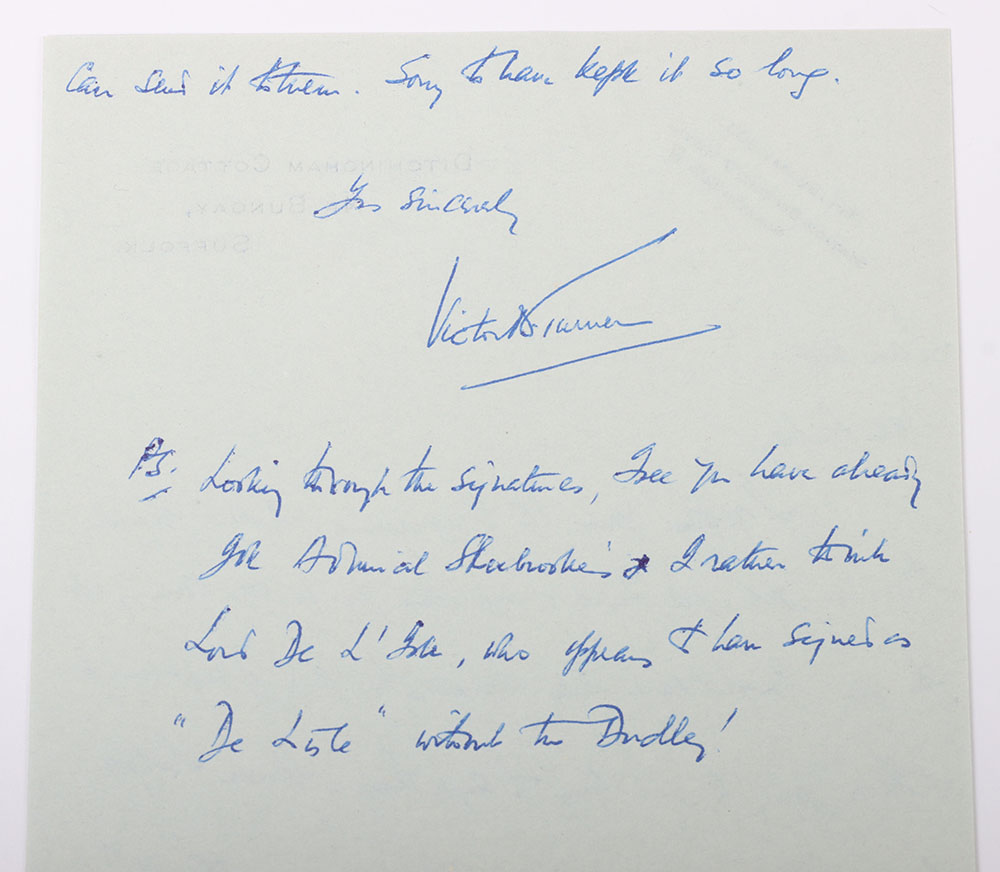 can send it to them. Sorry to have kept it so long.
DITCHINGHAM COTTAGE
BUNGAY,
SUFFOLK
Yrs sincerely
Victor B Turner
P.S. Looking through the signatures, I see you have already
got Admiral Sherbrooke's & I rather think
Lord De L'Isle, who appears to have signed as
"De Lisle" without the Dudley!